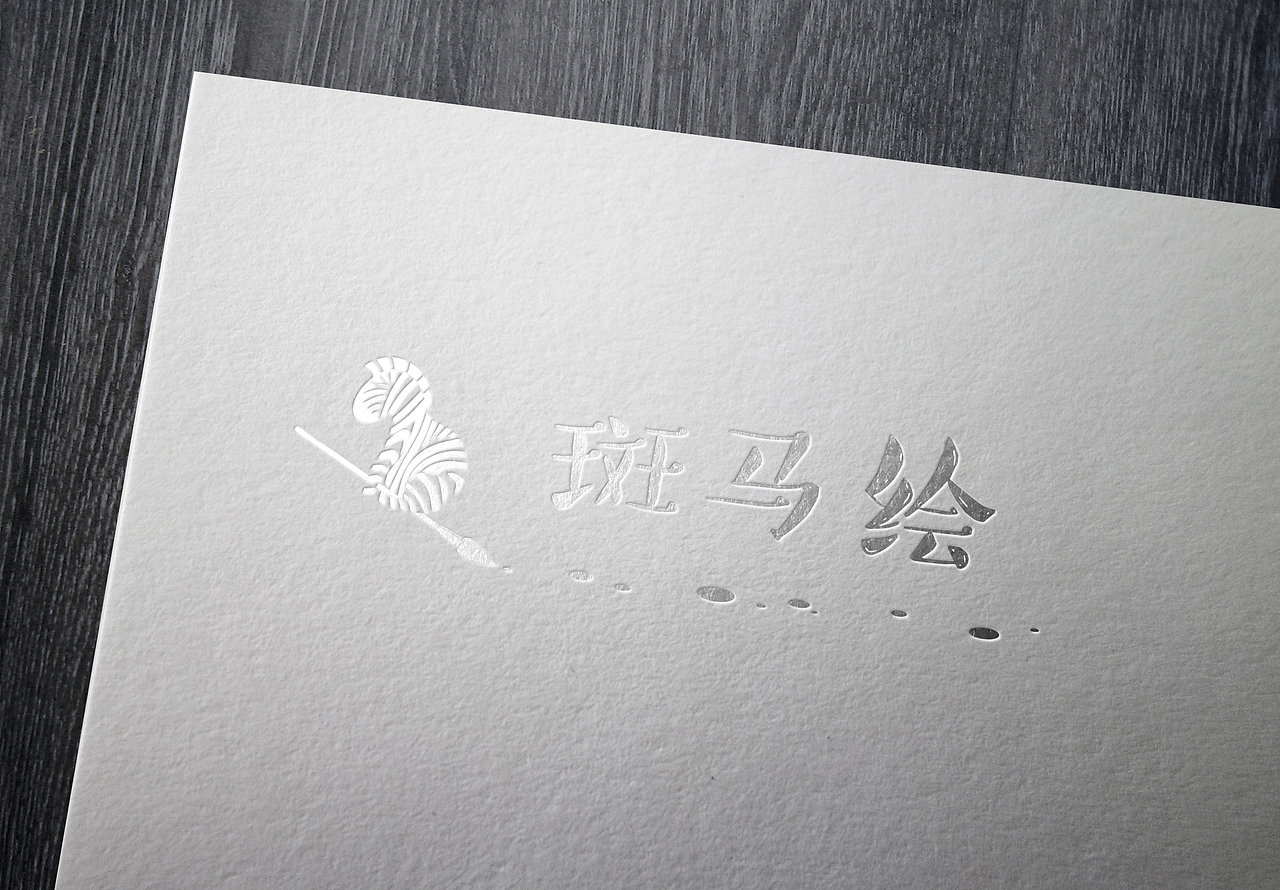 斑马绘